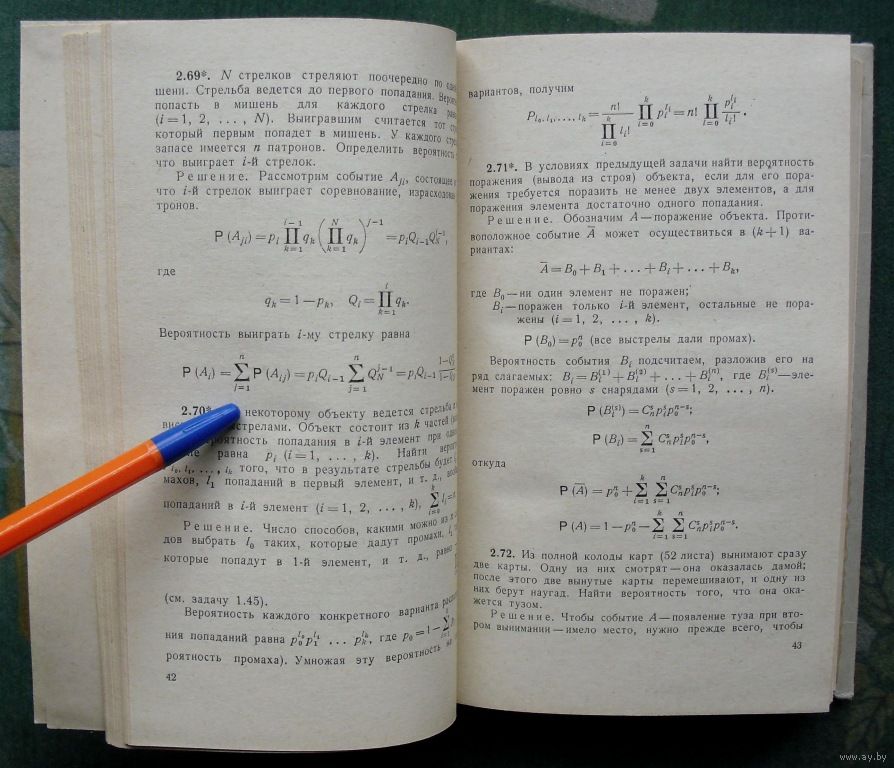 2.69*. N стрелков стреляют поочередно по
шени. Стрельба ведется до первого попадания.
попасть в мишень для каждого стрелка
(i = 1, 2, ..., N). Выигравшим считается тот
который первым попадет в мишень. У каждого
запасе имеется n патронов. Определить вероятность
что выиграет i-й стрелок.
Решение. Рассмотрим событие A_{ji}, состоящее
что i-й стрелок выиграет соревнование,
тронов.
P (A_{ji}) = p_i ∏_{k=1}^{i−1} q_k (∏_{k=1}^{N} q_k)^{j−1} = p_i Q_{i−1} Q_N^{j−1},
где
q_k = 1 − p_k, Q_i = ∏_{k=1}^{i} q_k.
Вероятность выиграть i-му стрелку равна
P (A_i) = ∑_{i=1}^{n} P (A_{ij}) = p_i Q_{i−1} ∑_{j=1}^{n} Q_N^{j−1} = p_i Q_{i−1}
2.70* некоторому объекту ведется стрельба
выстрелами. Объект состоит из k частей
вероятность попадания в i-й элемент при
равна p_i (i = 1, ..., k). Найти
l_0, l_1, ..., l_k того, что в результате стрельбы будет
махов, l_1 попаданий в первый элемент, и т. д.,
попаданий в i-й элемент (i = 1, 2, ..., k),
Решение. Число способов, какими можно из
дов выбрать l_0 таких, которые дадут промахи,
которые попадут в 1-й элемент, и т. д., равно
(см. задачу 1.45).
Вероятность каждого конкретного варианта
ния попаданий равна p_0^{l_0} p_1^{l_1} ... p_k^{l_k}, где p_0 = 1 −
роятность промаха). Умножая эту вероятность на
42
вариантов, получим
P_{l_0, l_1, ..., l_k} = \frac{n!}{∏_{i=0}^{k} l_i!} ∏_{i=0}^{k} p_i^{l_i} = n! ∏_{i=0}^{k} \frac{p_i^{l_i}}{l_i!}.
2.71*. В условиях предыдущей задачи найти вероятность
поражения (вывода из строя) объекта, если для его пора-
жения требуется поразить не менее двух элементов, а для
поражения элемента достаточно одного попадания.
Решение. Обозначим A — поражение объекта. Проти-
воположное событие Ā может осуществиться в (k + 1) ва-
риантах:
Ā = B_0 + B_1 + ... + B_i + ... + B_k,
где B_0 — ни один элемент не поражен;
B_i — поражен только i-й элемент, остальные не пора-
жены (i = 1, 2, ..., k).
P (B_0) = p_0^n (все выстрелы дали промах).
Вероятность события B_i подсчитаем, разложив его на
ряд слагаемых: B_i = B_i^{(1)} + B_i^{(2)} + ... + B_i^{(n)}, где B_i^{(s)} — эле-
мент поражен ровно s снарядами (s = 1, 2, ..., n).
P (B_i^{(s)}) = C_n^s p_i^s p_0^{n−s};
P (B_i) = ∑_{s=1}^{n} C_n^s p_i^s p_0^{n−s},
откуда
P (Ā) = p_0^n + ∑_{i=1}^{k} ∑_{s=1}^{n} C_n^s p_i^s p_0^{n−s};
P (A) = 1 − p_0^n − ∑_{i=1}^{k} ∑_{s=1}^{n} C_n^s p_i^s p_0^{n−s}.
2.72. Из полной колоды карт (52 листа) вынимают сразу
две карты. Одну из них смотрят — она оказалась дамой;
после этого две вынутые карты перемешивают, и одну из
них берут наугад. Найти вероятность того, что она ока-
жется тузом.
Решение. Чтобы событие A — появление туза при вто-
ром вынимании — имело место, нужно прежде всего, чтобы
43
www.ay.by